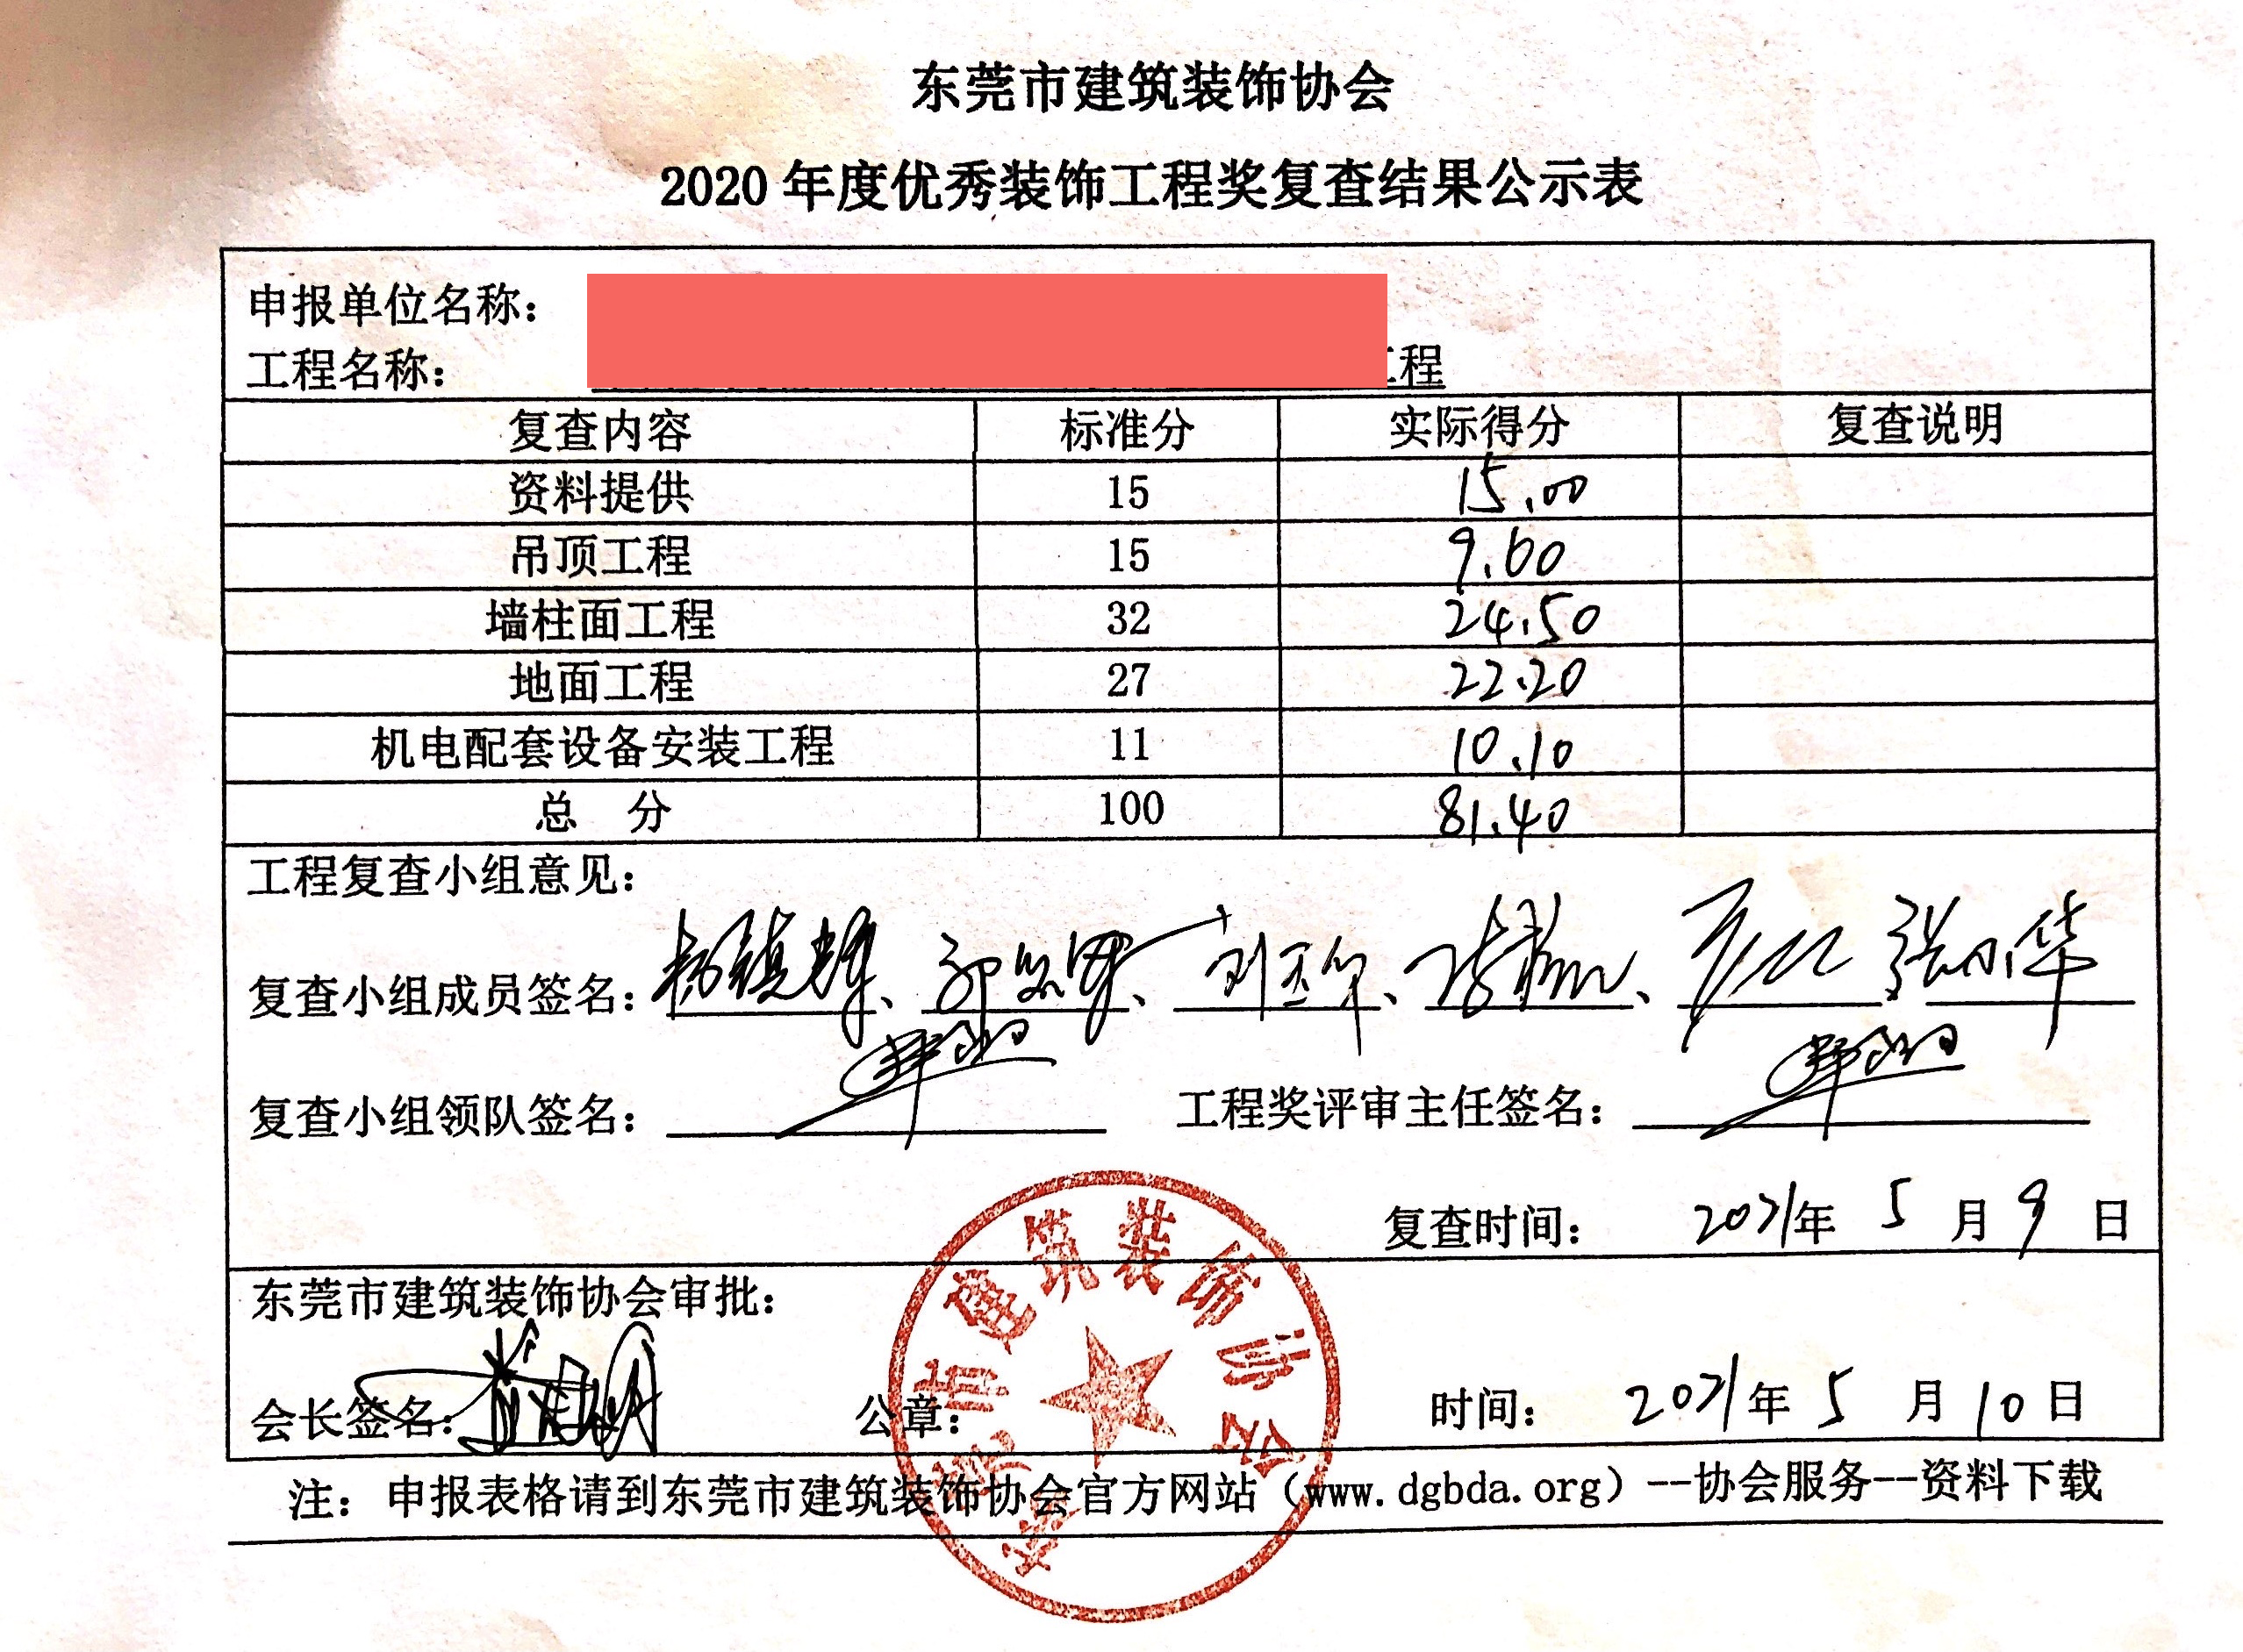 东莞市建筑装饰协会
2020 年度优秀装饰工程奖复查结果公示表
申报单位名称：
工程名称： 工程
复查内容 标准分 实际得分 复查说明
资料提供 15 15.00
吊顶工程 15 9.60
墙柱面工程 32 24.50
地面工程 27 22.20
机电配套设备安装工程 11 10.10
总 分 100 81.40
工程复查小组意见：
复查小组成员签名： 杨镇辉、 、 、 、 张小华
复查小组领队签名： 工程奖评审主任签名：
复查时间： 2021年 5 月 9 日
东莞市建筑装饰协会审批：
会长签名： 公章： 时间： 2021年 5 月 10 日
东莞市建筑装饰协会
注：申报表格请到东莞市建筑装饰协会官方网站（www.dgbda.org）--协会服务--资料下载